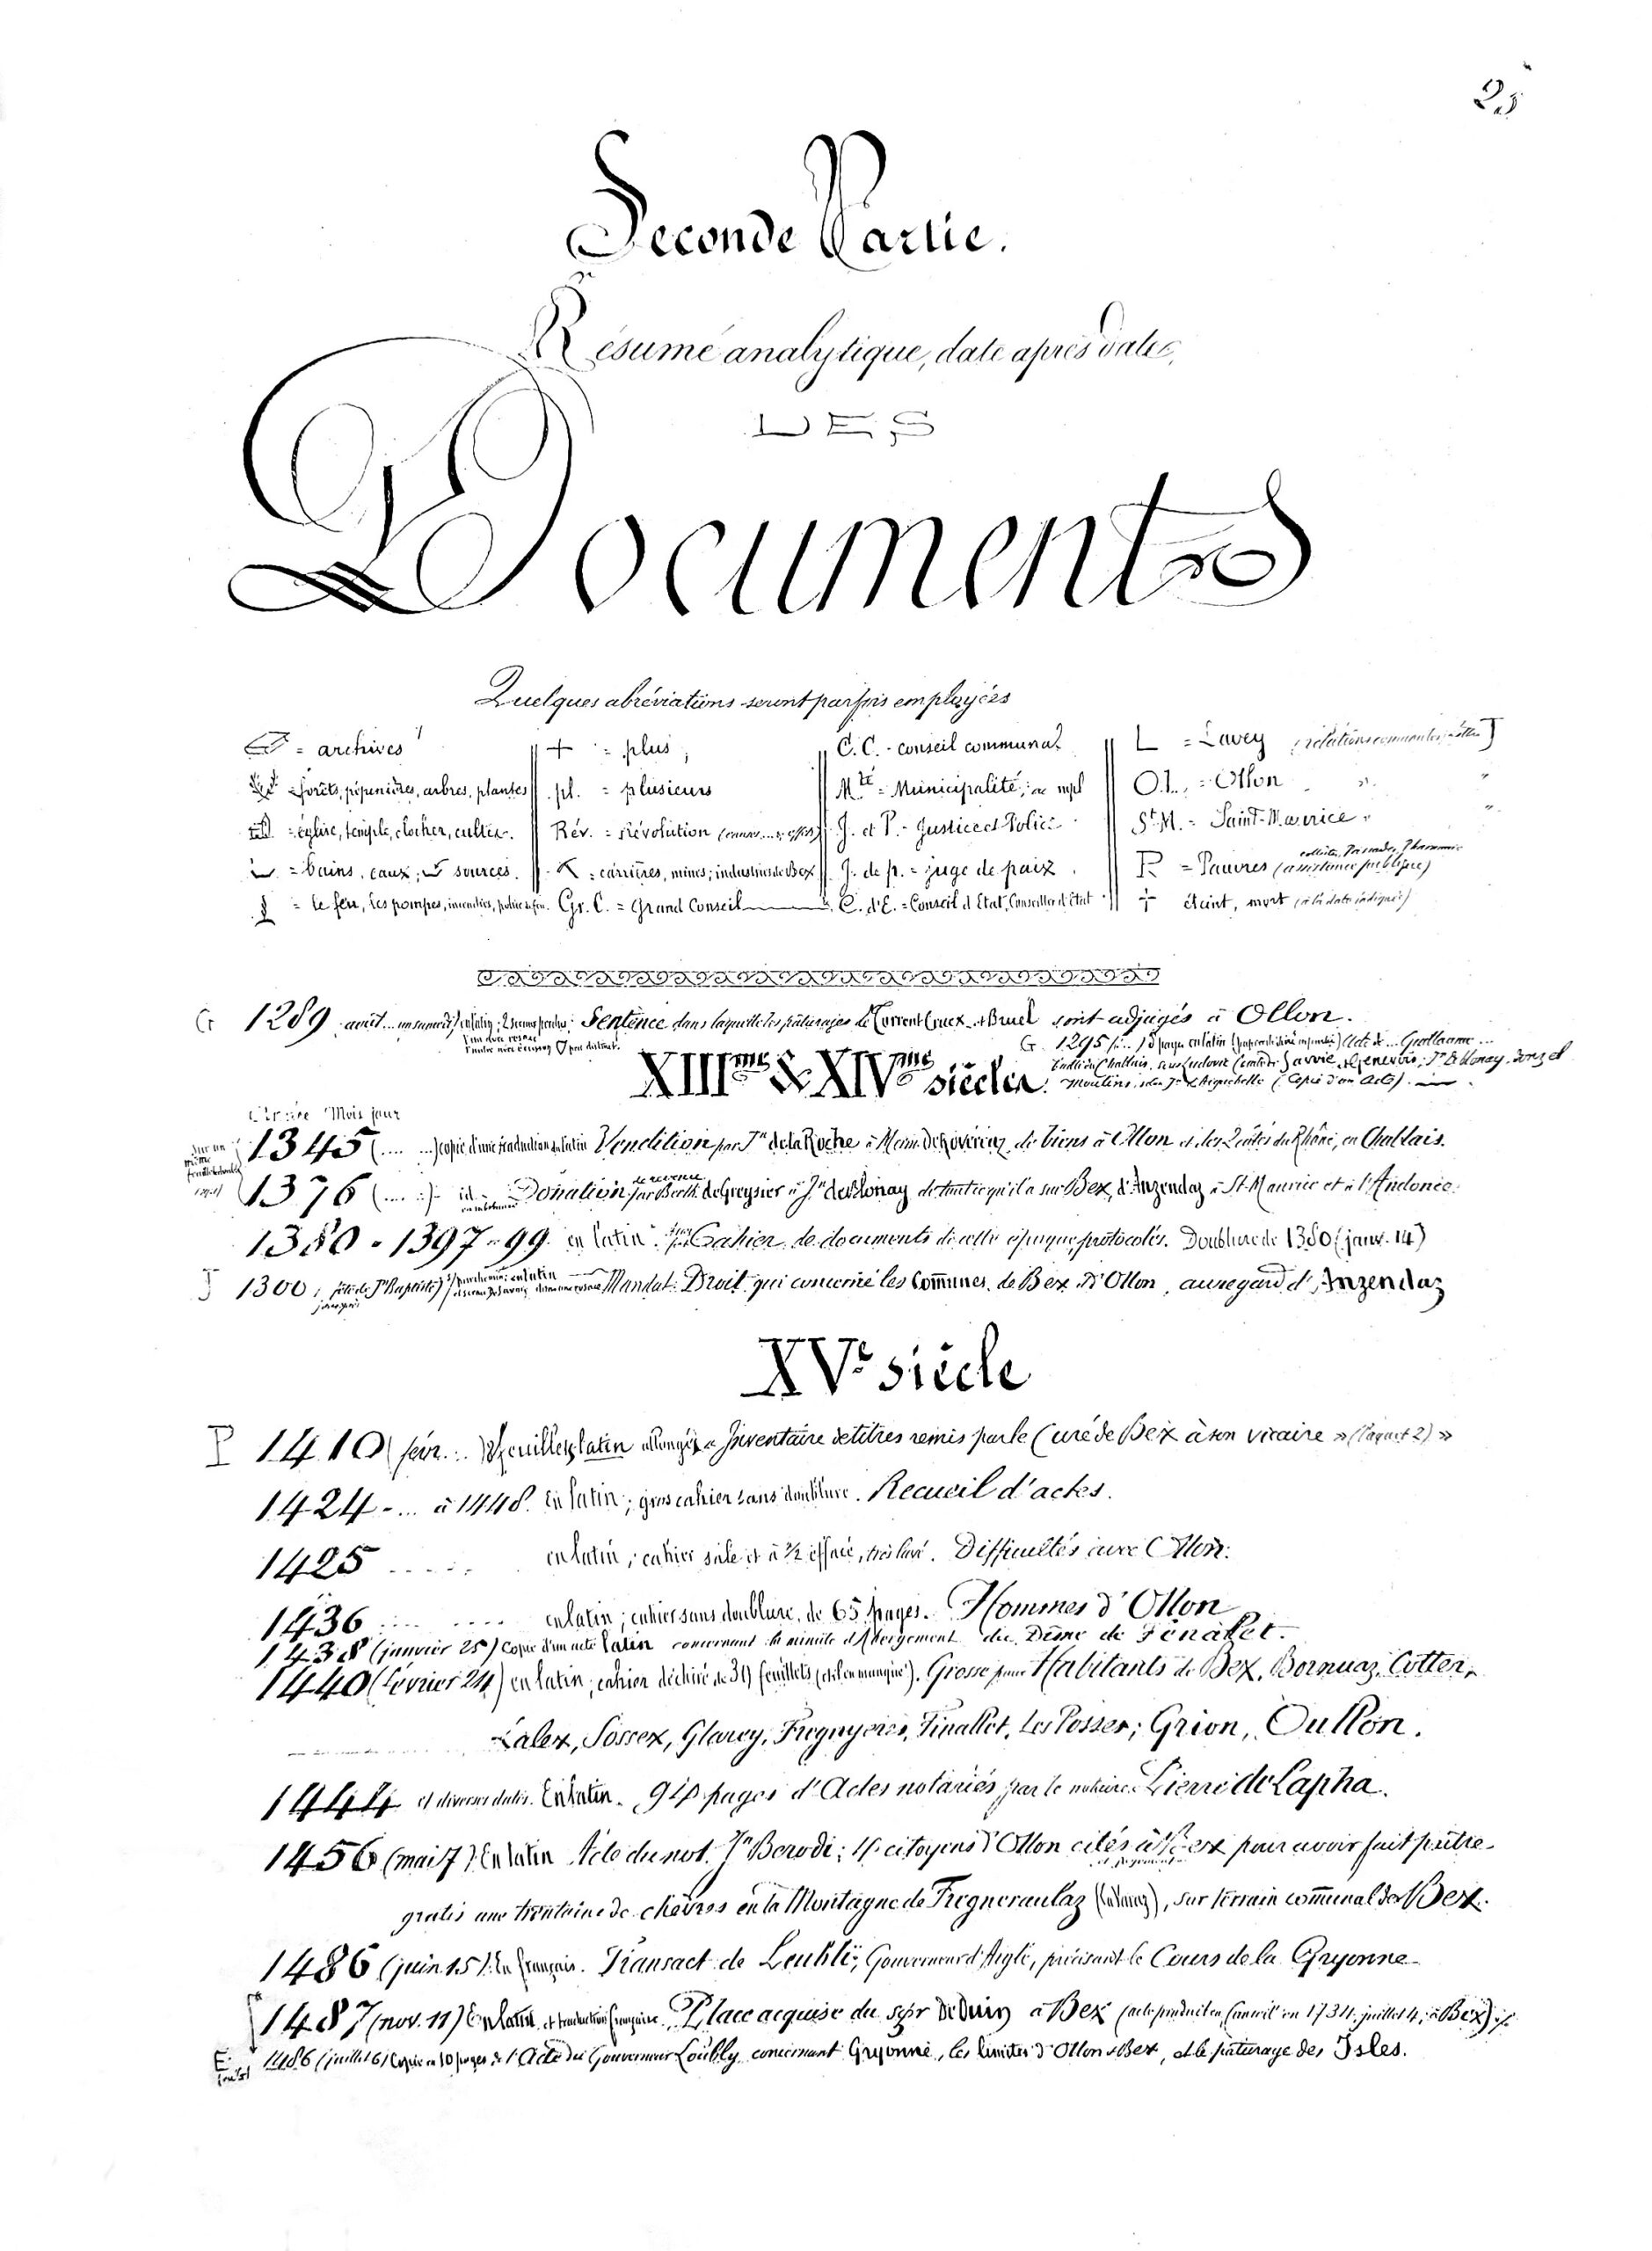 25
Seconde Partie.
Résumé analytique, date après date,
DES
Documents
Quelques abréviations seront parfois employées
= archives || + = plus ; || C. C. - conseil communal || L = Lavey
= forêts, pépinières, arbres, plantes || pl. = plusieurs || Mté = Municipalité; || Ol. = Ollon "
= église, temple, clocher, culte. || Rév. = Révolution || J. et P. = Justice et Police || St M. = Saint-Maurice "
= bains, eaux; sources. || = carrières, mines; industries de Bex || J. de p. = juge de paix || P = Pauvres (assistance publique)
= le feu, les pompes, incendies, police du feu. Gr. C. = Grand Conseil || C. d'E. = Conseil d'Etat, Conseiller d'Etat || + éteint, mort (à la date indiquée)
G 1289 août ... Sentence dans laquelle les pâturages de sont adjugés à Ollon.
G. 1295 en latin Acte de ... Guillaume ...
XIIIme & XIVme siècles.
Année Mois jour
1345 (.... ...) copie d'une traduction du latin Vendition par Jn de la Roche à de biens à Ollon et des 2 côtés du Rhône, en Chablais.
1376 (.... ..) id. Donation par Berth. de Greysier à Jn de Blonay de tout ce qu'il a sur Bex, d'Anzendaz à St Maurice et à l'Andonce.
1380 - 1397 - 99 en latin Cahier de documents de cette époque, protocolés. Doublure de 1380 (janv. 14)
J 1300 ; fête de Jn Baptiste) Mandat. Droit qui concerne les Communes de Bex et d'Ollon, au regard d'Anzendaz
XVe siècle
P 1410 (févr. ..) feuillets latin allongés « Inventaire de titres remis par le Curé de Bex à son vicaire » (Paquet 2) »
1424 - ... à 1448. En latin; gros cahier sans doublure. Recueil d'actes.
1425 ..... en latin; cahier sale et à 1/2 effacé, très lavé. Difficultés avec Ollon.
1436 ... .... en latin; cahier sans doublure, de 65 pages. Hommes d'Ollon
1438 (janvier 25) Copie d'un acte latin concernant la minute d'Abergement du Dîme de Fenalet.
1440 (février 24) en latin; cahier déchiré de 39 feuillets (et il en manque). Grosse pour Habitants de Bex, Bornuaz, Cotter,
Lalex, Sossex, Glarey, Fregnyeres, Finallet, Les Posses; Grion, Oullon.
1444 et diverses dates. En latin. 918 pages d'Actes notariés par le notaire Pierre de Capha.
1456 (mai 7). En latin Acte du not. Jn Berodi; 4 citoyens d'Ollon cités à Bex pour avoir fait paître
gratis une trentaine de chèvres en la Montagne de Fregneraulaz, sur terrain communal de Bex.
1486 (juin 15). En français. Transact de Leublï, Gouverneur d'Aigle, précisant le Cours de la Gryonne
1487 (nov. 11) En latin et traduction française. Place acquise du sgr de Duin à Bex (acte produit en Conseil en 1734, juillet 4, à Bex)
E 1486 (juillet 6) Copie en 10 pages de l'Acte du Gouverneur Loubly concernant Gryonne, les limites d'Ollon & Bex, et le pâturage des Isles.